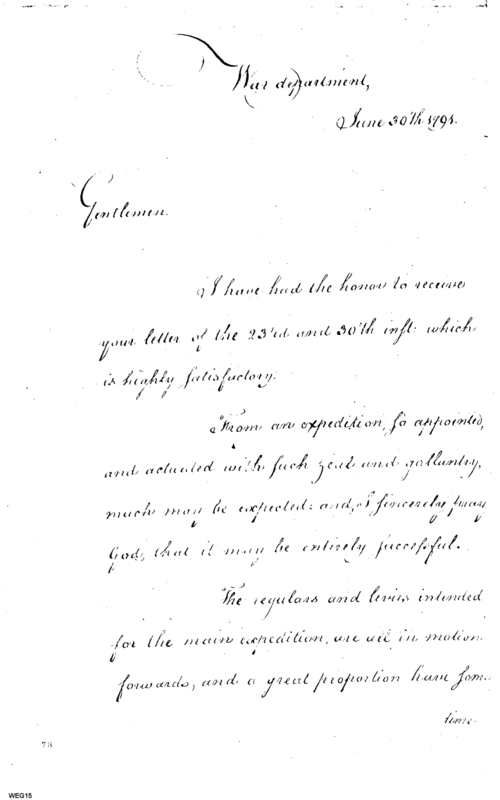 War department,
June 30th 1791.
Gentlemen.
I have had the honor to receive
your letter of the 23rd and 30th inst: which
is highly satisfactory.
From an expedition, so appointed,
and actuated with such zeal and gallantry,
much may be expected: and, I sincerely pray
God, that it may be entirely successful.
The regulars and levies intended
for the main expedition, are all in motion
forwards, and a great proportion have some
time.
78
WEG15